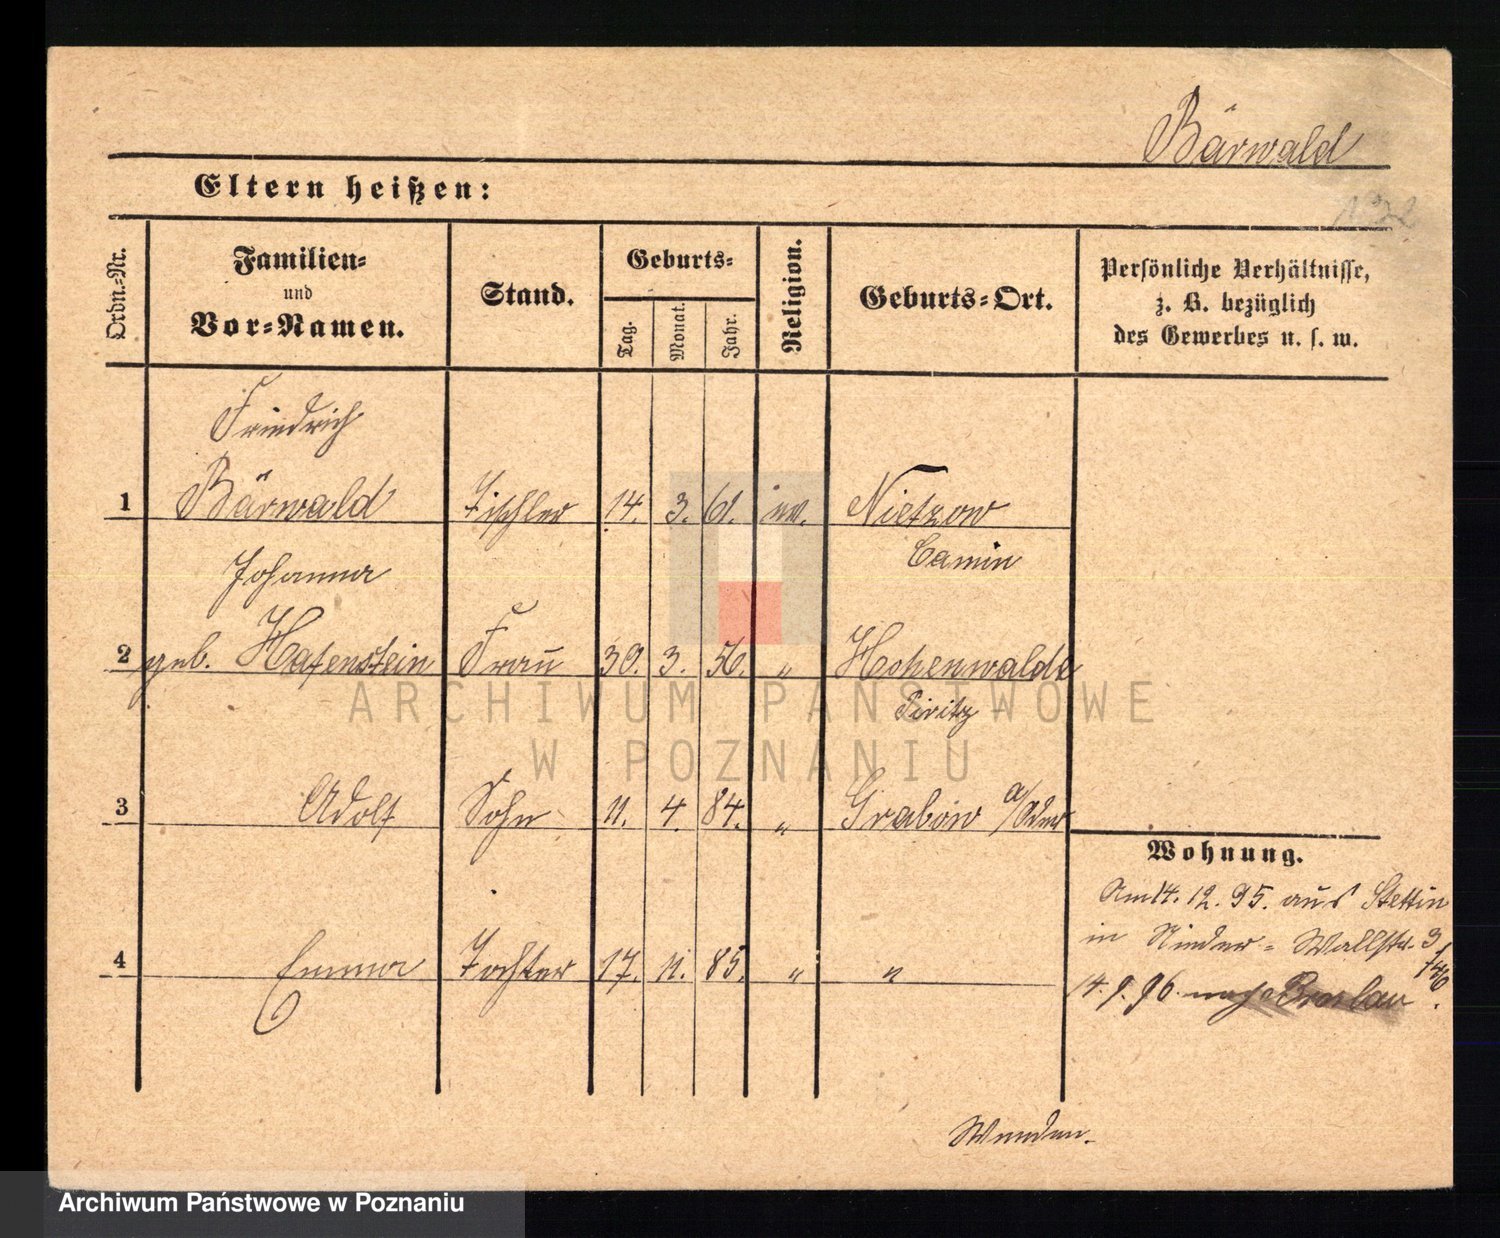 Bärwald
Eltern heißen:
132
Ordn.-Nr.
Familien-
und
Vor-Namen.
Stand.
Geburts-
Tag.
Monat.
Jahr.
Religion.
Geburts-Ort.
Persönliche Verhältnisse,
z. B. bezüglich
des Gewerbes u. s. w.
Friedrich
1 Bärwald Tischler 14. 3. 61. ev. Nietzow
Camin
Johanna
2 geb. Hafenstein Frau 30. 3. 56. " Hohenwalde
Piritz
3 Adolf Sohn 11. 4. 84. " Grabow a/Oder
4 Emma Tochter 17. 11. 85. " "
Wohnung.
Am 14. 12. 95. aus Stettin
in Nieder-Wallstr. 3
14. 9. 96. nach Breslau
Wenden.
ARCHIWUM PAŃSTWOWE
W POZNANIU
Archiwum Państwowe w Poznaniu